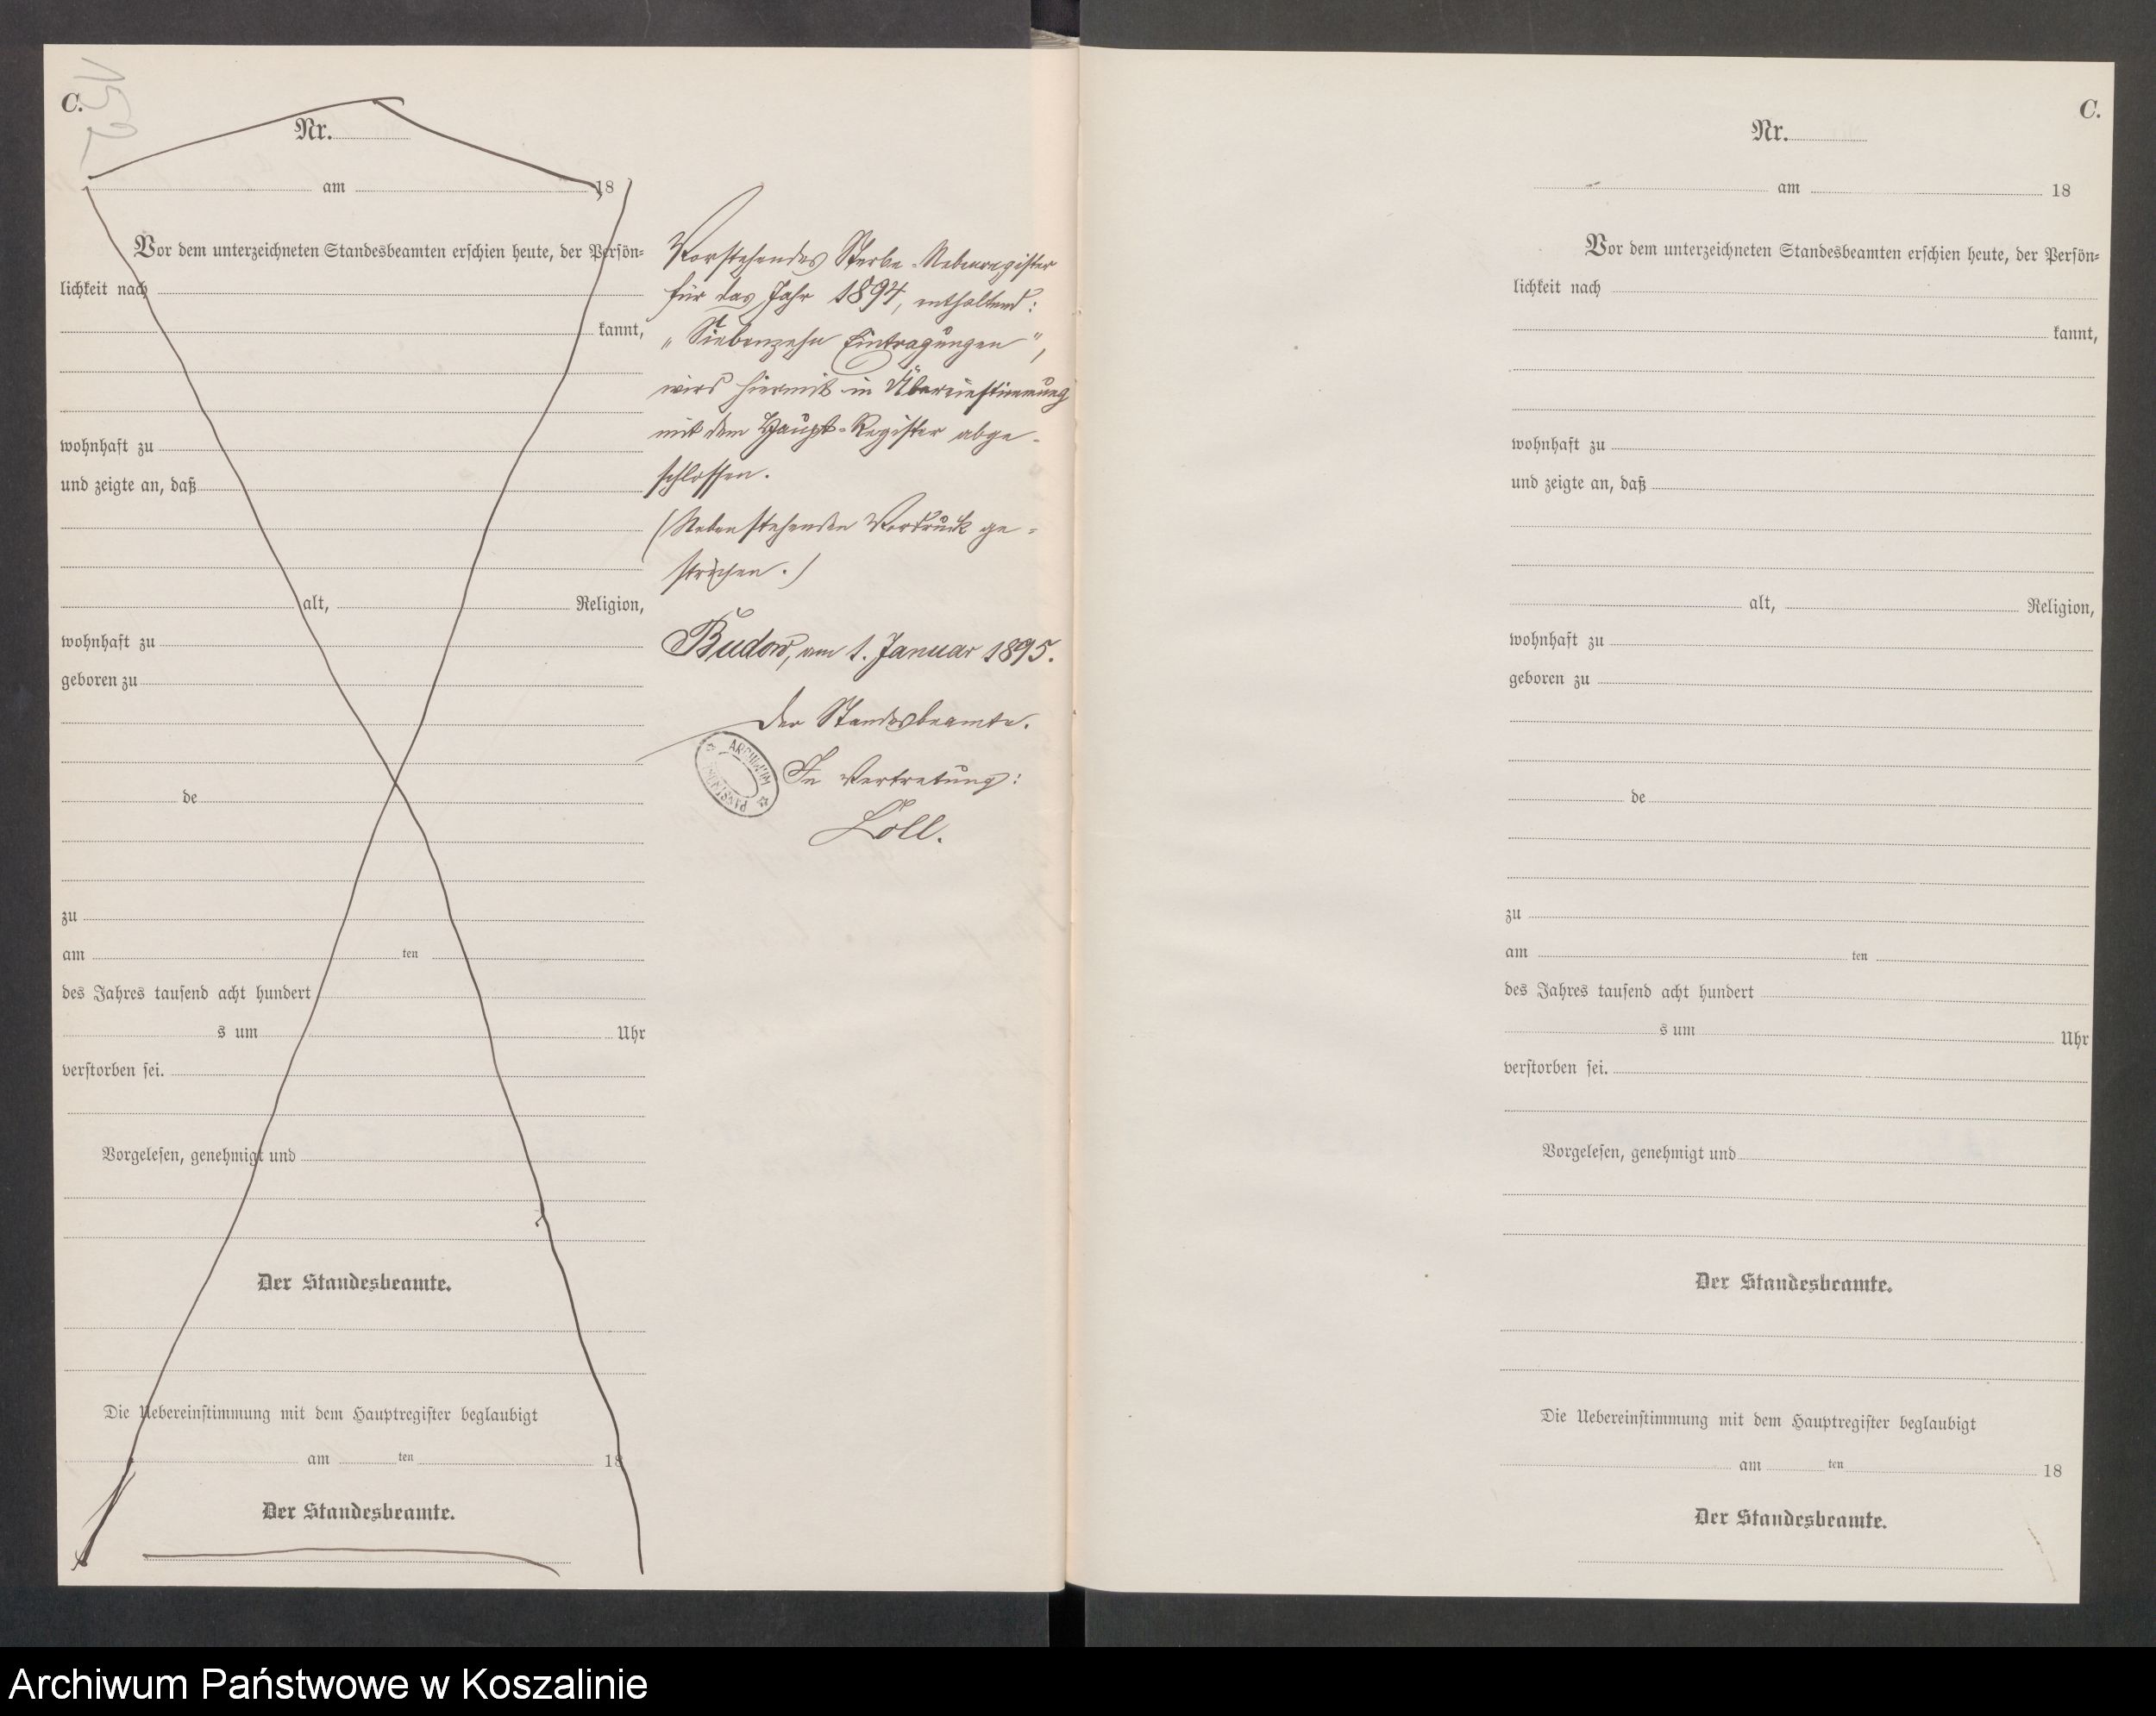 152
C.
Nr.
am 18
Vor dem unterzeichneten Standesbeamten erschien heute, der Persön-
lichkeit nach
kannt,
wohnhaft zu
und zeigte an, daß
alt, Religion,
wohnhaft zu
geboren zu
de
zu
am ten
des Jahres tausend acht hundert
s um Uhr
verstorben sei.
Vorgelesen, genehmigt und
Der Standesbeamte.
Die Uebereinstimmung mit dem Hauptregister beglaubigt
am ten 18
Der Standesbeamte.
Vorstehendes Sterbe-Nebenregister
für das Jahr 1894, enthaltend:
„Siebenzehn Eintragungen“,
wird hiermit in Übereinstimmung
mit dem Haupt-Register abge-
schlossen.
(Nebenstehenden Vordruck ge-
strichen.)
Budow, am 1. Januar 1895.
Der Standesbeamte.
In Vertretung:
Loll.
ARCHIWUM
C.
Nr.
am 18
Vor dem unterzeichneten Standesbeamten erschien heute, der Persön-
lichkeit nach
kannt,
wohnhaft zu
und zeigte an, daß
alt, Religion,
wohnhaft zu
geboren zu
de
zu
am ten
des Jahres tausend acht hundert
s um Uhr
verstorben sei.
Vorgelesen, genehmigt und
Der Standesbeamte.
Die Uebereinstimmung mit dem Hauptregister beglaubigt
am ten 18
Der Standesbeamte.
Archiwum Państwowe w Koszalinie